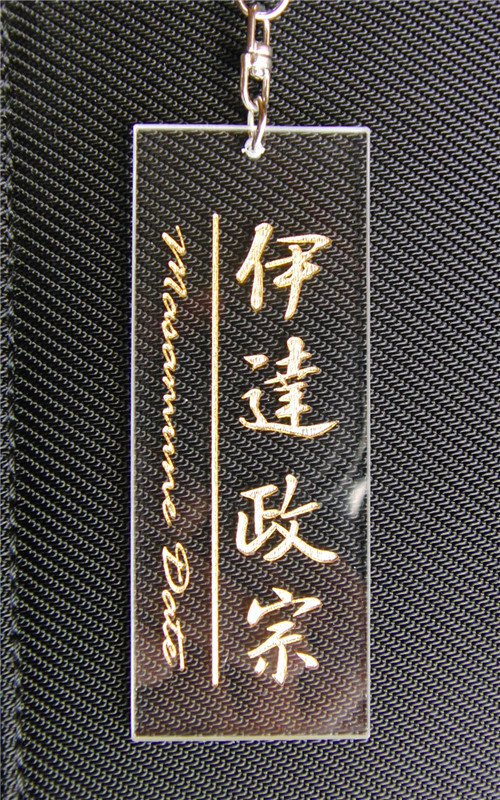 伊達政宗
Masamune Date